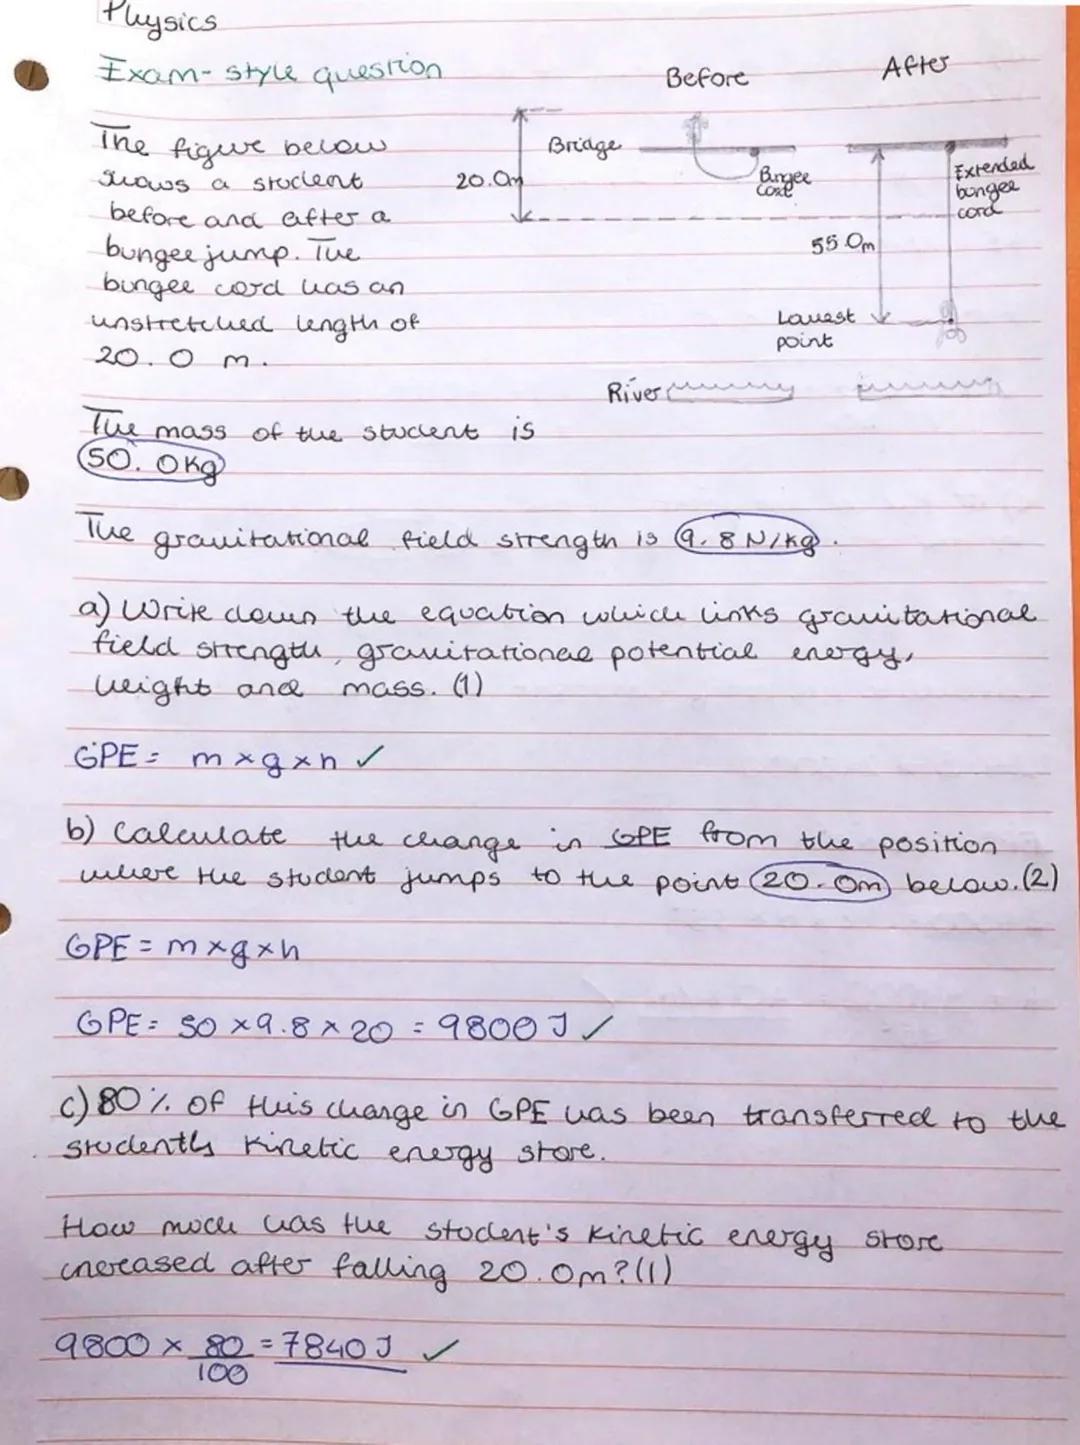 Physics
Exam-style question
Before
After
The figure below
shows a student
before and after a
bungee jump. The
bungee cord has an
unstretched length of
20.0 m.
20.0m
Bridge
Bungee
cord
Extended
bungee
cord
55.0m
Lowest
point
River
The mass of the student is
50.0kg
The gravitational field strength is 9.8 N/kg.
a) Write down the equation which links gravitational
field strength, gravitational potential energy,
height and mass. (1)
GPE = m×g×h ✓
b) Calculate the change in GPE from the position
where the student jumps to the point 20.0m below. (2)
GPE = m×g×h
GPE = 50 ×9.8 × 20 = 9800 J ✓
c) 80% of this change in GPE has been transferred to the
student's kinetic energy store.
How much has the student's kinetic energy store
increased after falling 20.0m? (1)
9800 × 80/100 = 7840 J ✓